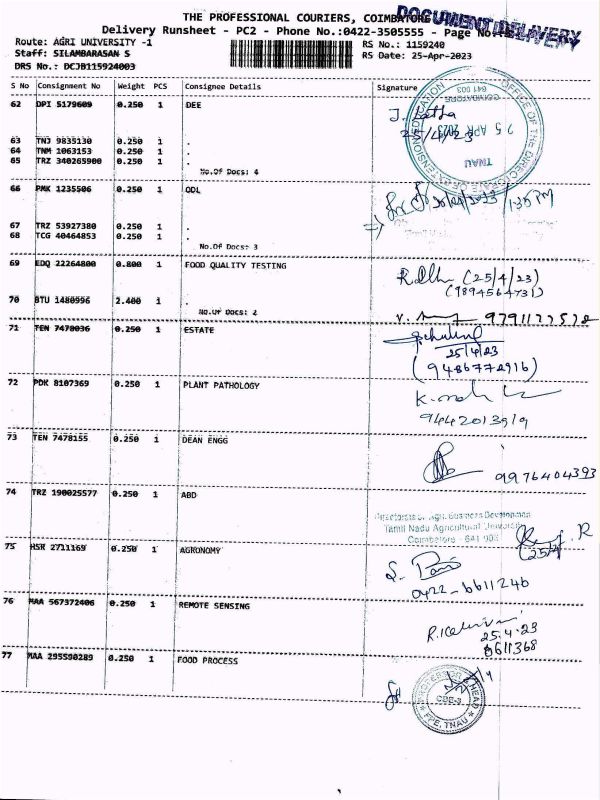 THE PROFESSIONAL COURIERS, COIMBATORE
DOCUMENT DELIVERY
Delivery Runsheet - PC2 - Phone No.:0422-3505555 - Page No.:
Route: AGRI UNIVERSITY -1
RS No.: 1159240
Staff: SILAMBARASAN S
RS Date: 25-Apr-2023
DRS No.: DCJB115924003
S No Consignment No Weight PCS Consignee Details Signature
62 DPI 5179609 0.250 1 DEE
J. Latha
25/4/23
OFFICE OF THE DIRECTORATE OF EXTENSION EDUCATION
COIMBATORE
641 003
25 APR 2023
TNAU
63 TNJ 9835130 0.250 1 .
64 TNM 1063153 0.250 1 .
65 TRZ 340265900 0.250 1 .
No.Of Docs: 4
66 PMK 1235506 0.250 1 ODL
1:35 PM
67 TRZ 53927380 0.250 1 .
68 TCG 40464853 0.250 1 .
No.Of Docs: 3
69 EDQ 22264800 0.800 1 FOOD QUALITY TESTING
(25/4/23)
(9894564731)
70 BTU 1480996 2.400 1 .
No.Of Docs: 2
9791177578
71 TEN 7478036 0.250 1 ESTATE
25/4/23
(9486772916)
72 PDK 8107369 0.250 1 PLANT PATHOLOGY
9442013919
73 TEN 7478155 0.250 1 DEAN ENGG
9976404393
74 TRZ 190025577 0.250 1 ABD
Directorate of Agri Business Development
Tamil Nadu Agricultural University
Coimbatore - 641 003
75 HSR 2711169 0.250 1 AGRONOMY
0422-6611246
76 MAA 567372406 0.250 1 REMOTE SENSING
25.4.23
6611368
77 MAA 295590289 0.250 1 FOOD PROCESS
PROFESSOR & HEAD
FPE, TNAU